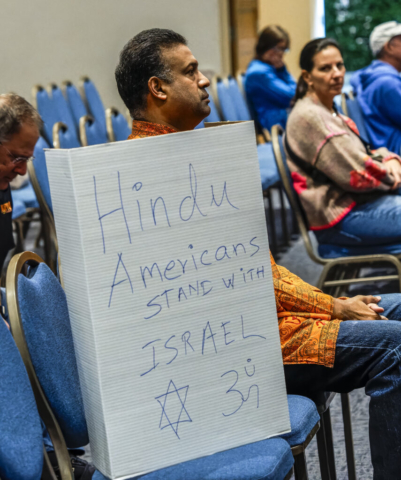 Hindu
Americans
STAND WITH
ISRAEL
✡ ॐ